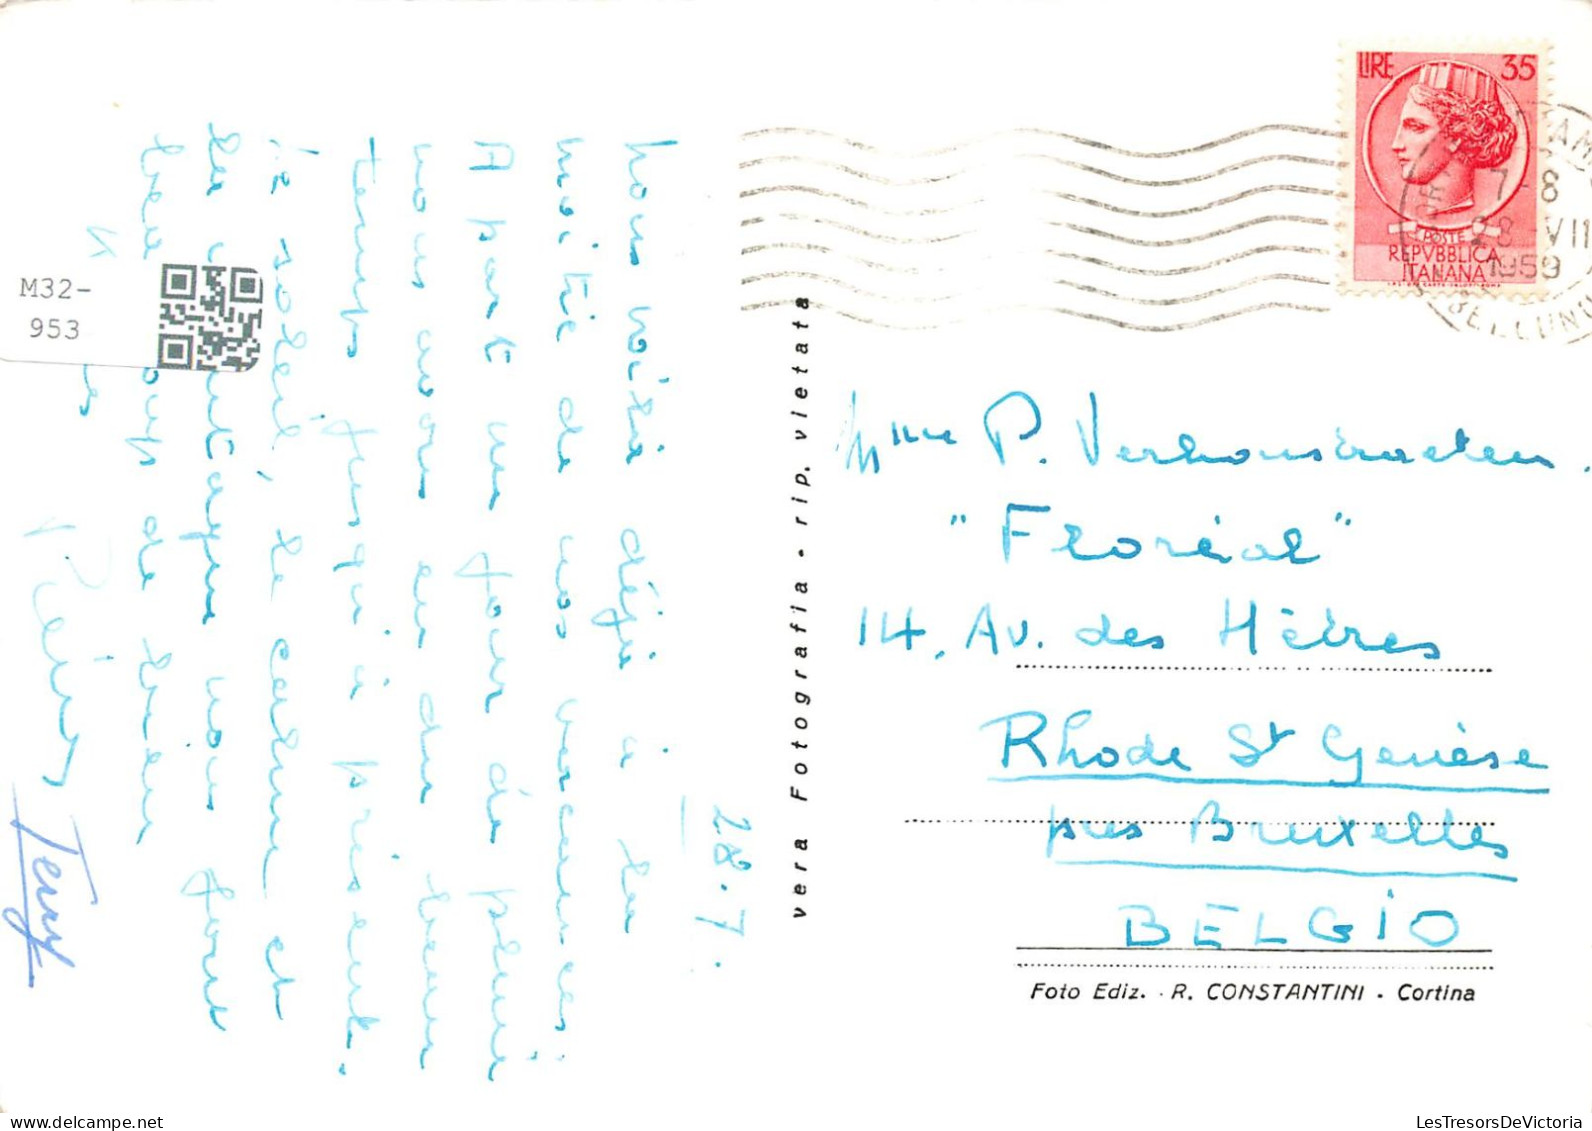 28.7.
Nous voilà déjà à la
moitié de nos vacances;
A part un jour de pluie
nous avons eu du beau
temps jusqu'à présent.
Le soleil, le calme et
la montagne nous font
beaucoup de bien
Terry
M32-
953
vera Fotografia - rip. vietata
LIRE 35
POSTE
REPVBBLICA
ITALIANA
7-8
28 VII
1959
BELLUNO
Mme P. Verhonstraeten.
"Floréal"
14, Av. des Hêtres
Rhode St Genèse
près Bruxelles
BELGIO
Foto Ediz. - R. CONSTANTINI - Cortina
LesTresorsDeVictoria